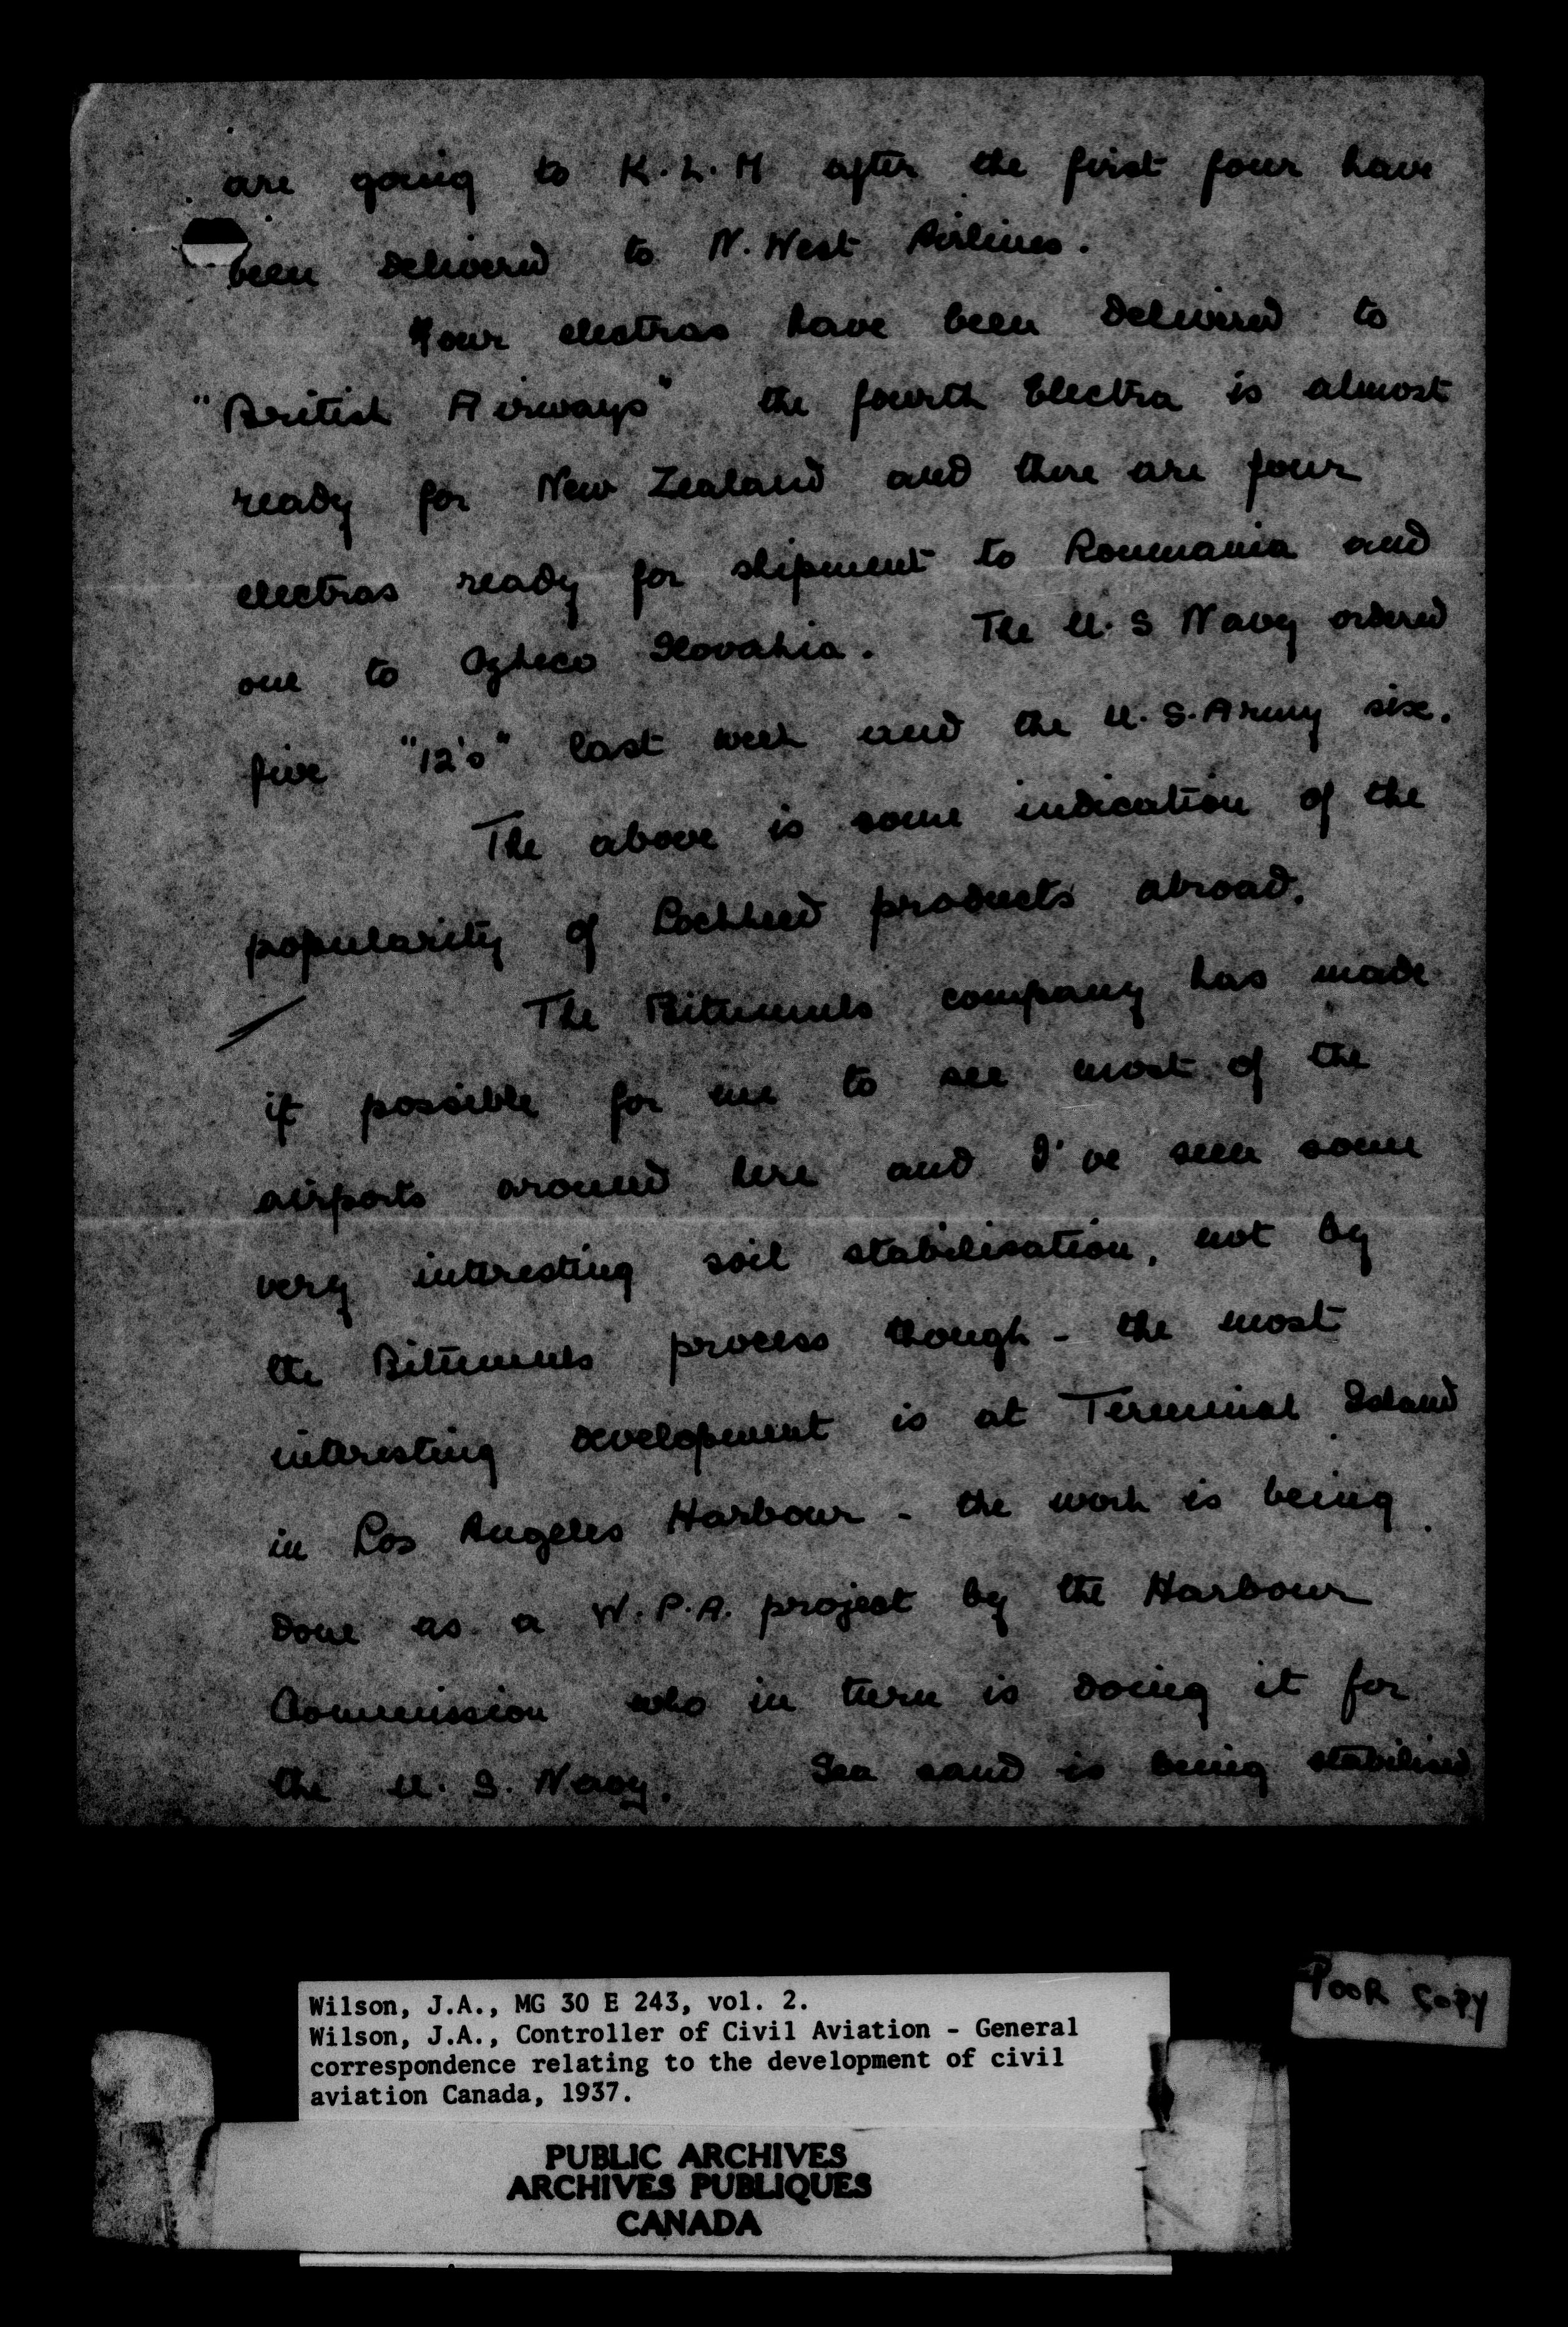 are going to K.L.M after the first four have
been delivered to N. West Airlines.
Four electras have been delivered to
"British Airways" the fourth Electra is almost
ready for New Zealand and there are four
electras ready for shipment to Roumania and
one to Slovakia. The U.S Navy ordered
five "12's" last week and the U.S. Army six.
The above is some indication of the
popularity of Lockheed products abroad.
The Bitumuls company has made
it possible for me to see most of the
airports around here and I've seen some
very interesting soil stabilisation, not by
the Bitumuls process though - the most
interesting development is at Terminal Island
in Los Angeles Harbour - the work is being
done as a W.P.A. project by the Harbour
Commission who in turn is doing it for
the U.S. Navy. Sea sand is being stabilised
POOR COPY
Wilson, J.A., MG 30 E 243, vol. 2.
Wilson, J.A., Controller of Civil Aviation - General
correspondence relating to the development of civil
aviation Canada, 1937.
PUBLIC ARCHIVES
ARCHIVES PUBLIQUES
CANADA